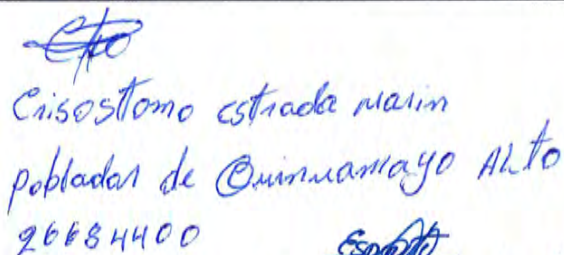 Crisostomo estrada marin
poblador de Quinuamayo ALto
26684400